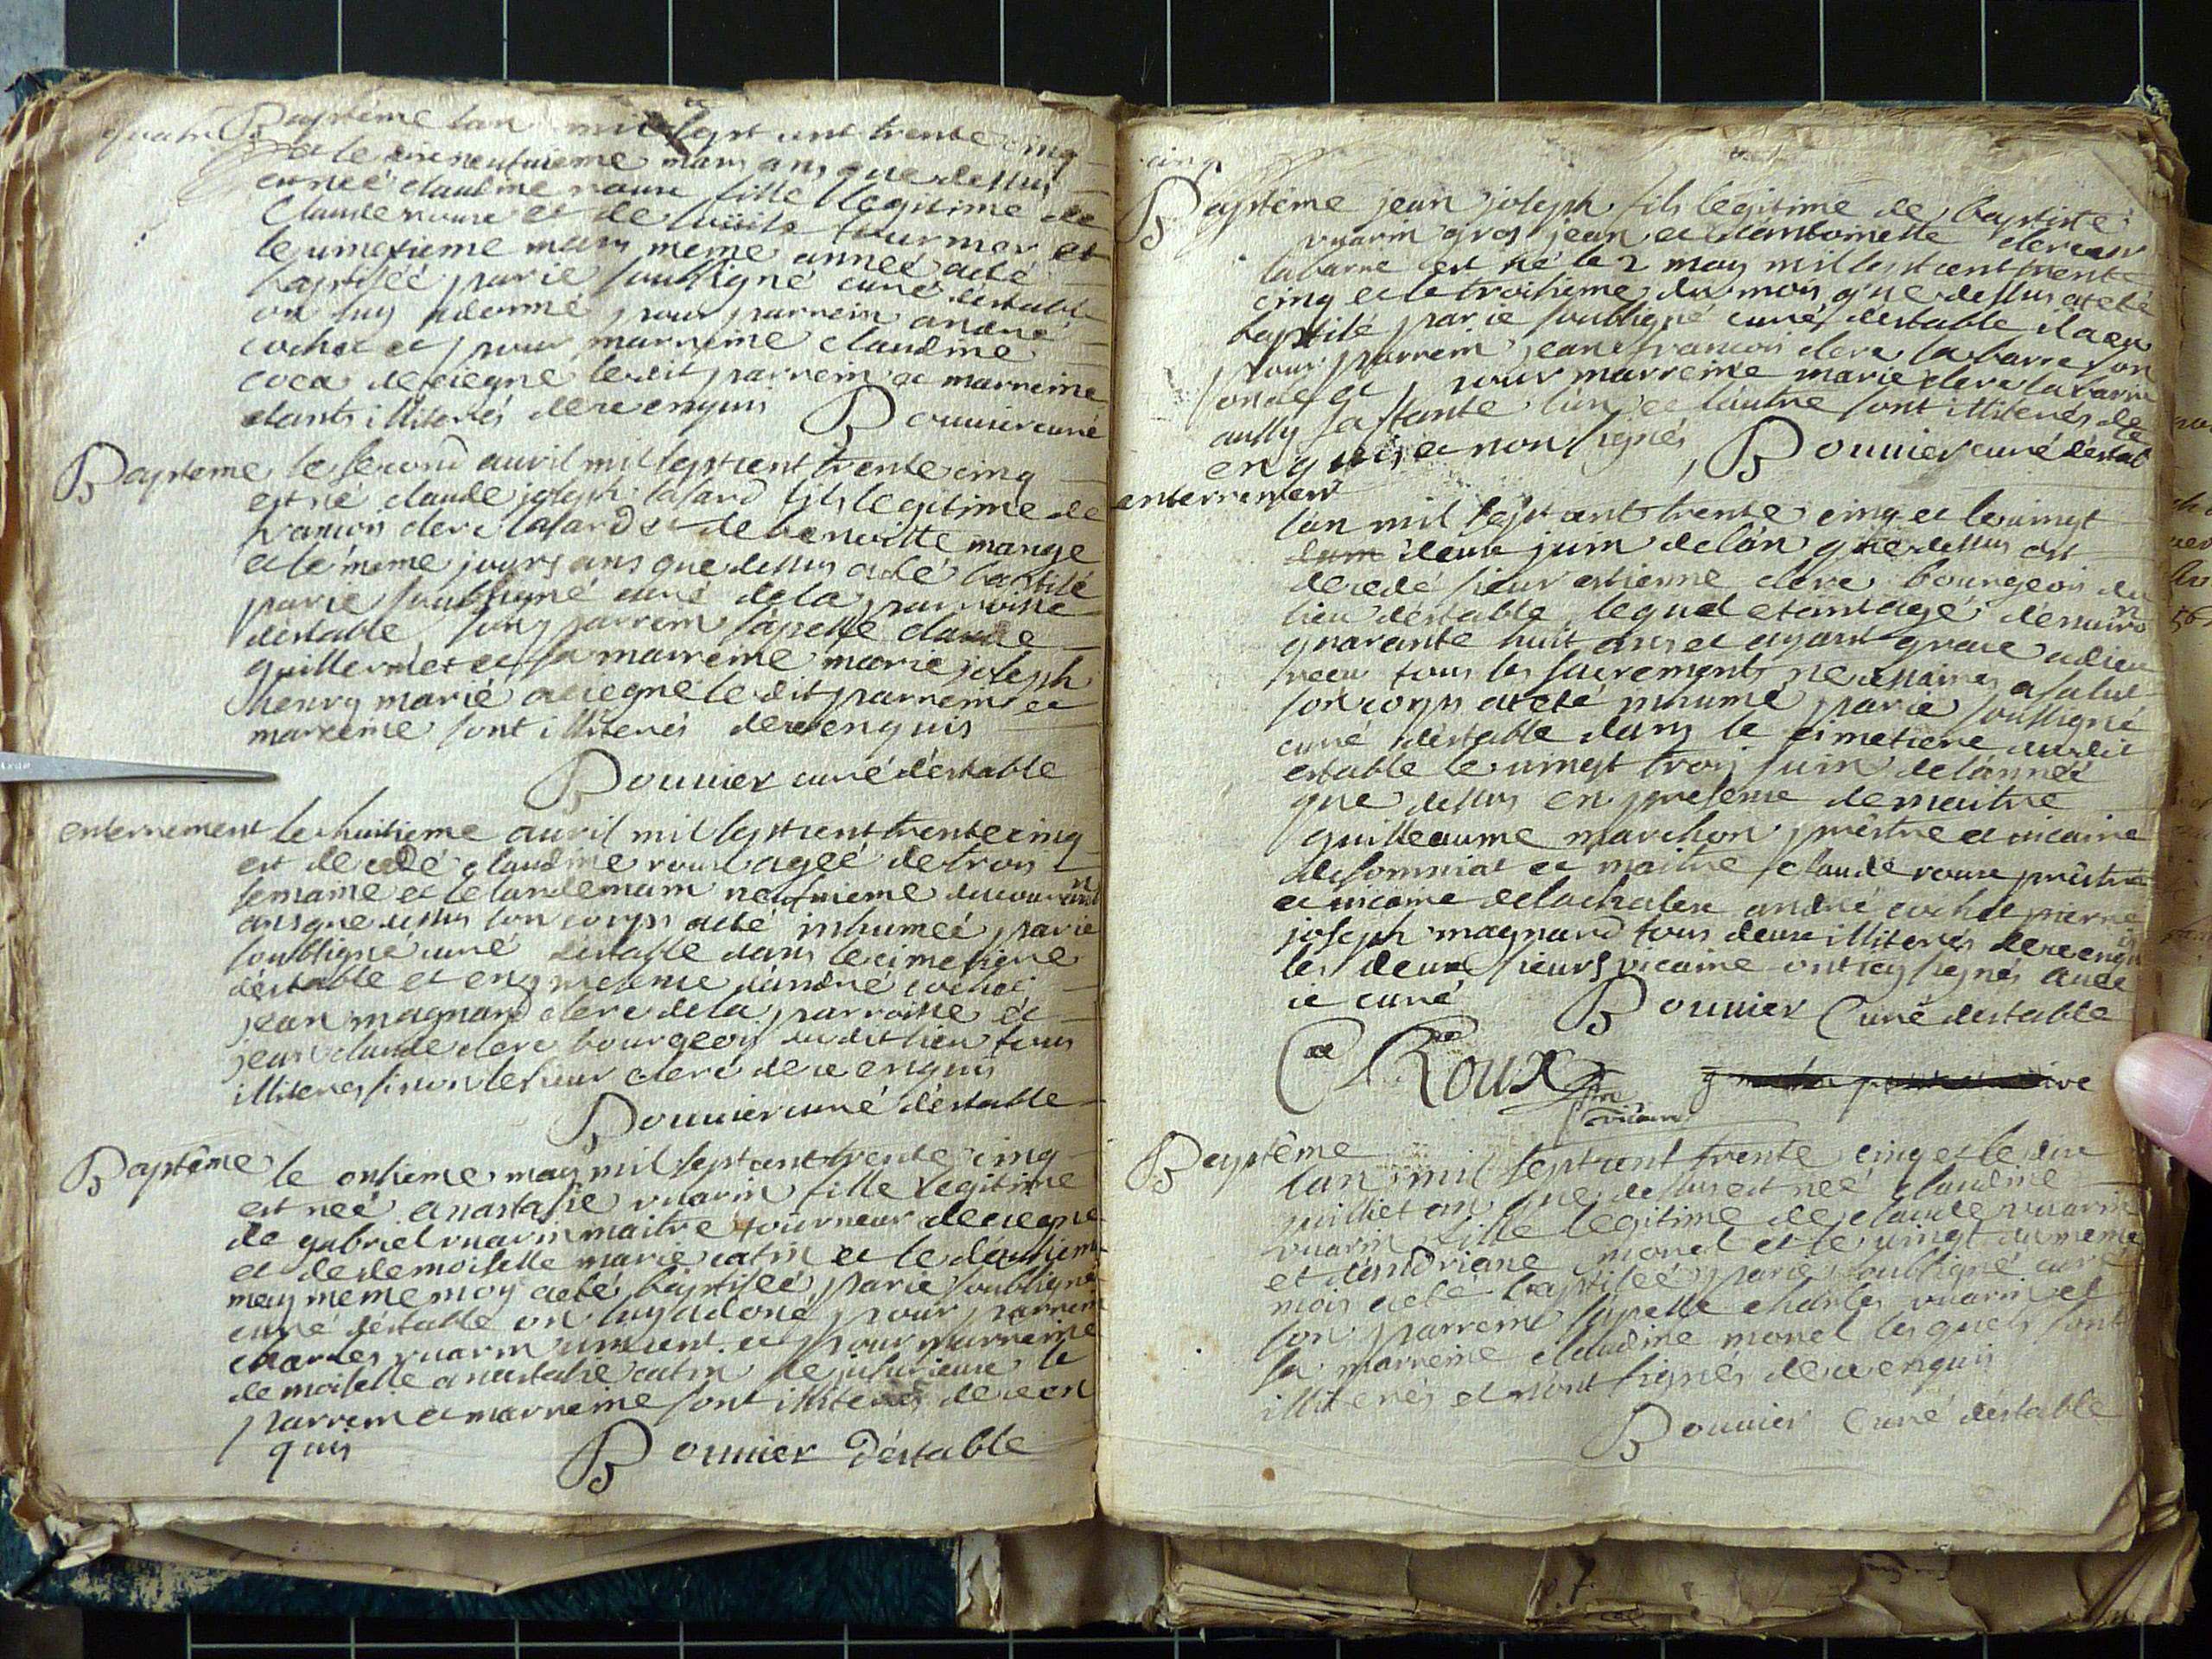 quatre
Baptême lan mil sept cent trente cinq
et le dixneufuieme mars ans que dessus
est neé claudine roux fille legitime de
Claude roux et de tournier et
le uintieme mars meme anneé a eté
baptiseé par ie soubsigné curé destable
on luy a donné pour parrein andré
cochet et pour marreine claudine
coca de ciegne ledit parrein et marreine
etants illiterés de ce enquis Bouuier curé
Bapteme le second auril mil sept cent trente cinq
est né claude joseph lasard fils legitime de
francois clerc lasard et de benoitte mange
et le meme jours ans que dessus a eté baptisé
par ie soubsigné curé de la parroisse
déstable son parrein sapelle claude
guillermet et sa marreine marie joseph
henry marié a ciegne le dit parrein et
marreine sont illiterés de ce enquis
Bouuier curé déstable
enterrement le huitieme auril mil sept cent trente cinq
est decedé claudine roux ageé de trois
semaine et le landemain neufuieme du courant
ans que dessus son corps a eté inhumeé par ie
soubsigné curé destable dans le cimetiere
déstable et en presence dandré cochet
jean magnard clerc de la parroisse et
jean claude clerc bourgeois dudit lieu tous
illiterés sinon le sieur clerc de ce enquis
Bouuier curé déstable
Baptême le onsieme may mil sept cent trente cinq
est neé anastasie vuarin fille legitime
de gabriel vuarin maitre tourneur de ciegne
et de demoiselle marie catin et le douzieme
may meme moy a eté baptiseé par ie soubsigné
curé déstable on luy a doné pour parrein
charles vuarin uincent et pour marreine
demoiselle anastasie catin de jusurieux le
parrein et marreine sont illiterés de ce en
quis Bouuier déstable
cinq
Baptême jean joseph fils legitime de baptiste
vuarin gros jean et dantoinette clerc
labarre est né le 2 may mil sept cent trente
cinq et le troisieme du mois que dessus a eté
baptisé par ie soubsigné curé destable il a eu
pour parrein jean francois clerc labarre son
oncle et pour marreine marie clerc labarre
aussy sa tante lun et lautre sont illiterés de ce
enquis et non signés Bouuier curé déstab
enterrement
lan mil sept cent trente cinq et le uingt
deux juin de lan que dessus est
decedé sieur estienne clerc bourgeois du
lieu déstable lequel etant agé denuiron
quarante huit ans et ayant grace a dieu
receu tous les sacrements necessaires a salut
son corps a eté inhumé par ie soussigné
curé déstable dans le cimetiere dudit
estable le uingt trois juin de lanneé
que dessus en presence de maitre
guilleaume marchon prêstre et uicaire
de somniat et maitre claude roux prêstre
et uicaire de lachaleu andré cochet pierre
joseph magnard tous deux illiterés de ce enquis
les deux sieurs vicaire ont icy signés auec
ie curé Bouuier Curé destable
Roux
Baptême
lan mil sept cent trente cinq et le dix
juilliet an que dessus est neé claudine
vuarin fille legitime de claude vuarin
et dandriane monel et le uingt du meme
mois a eté baptiseé par ie soubsigné curé
son parrein sapelle charles vuarin et
sa marreine claudine monel lesquels sont
illiterés et nont signés de ce enquis
Bouuier Curé déstable